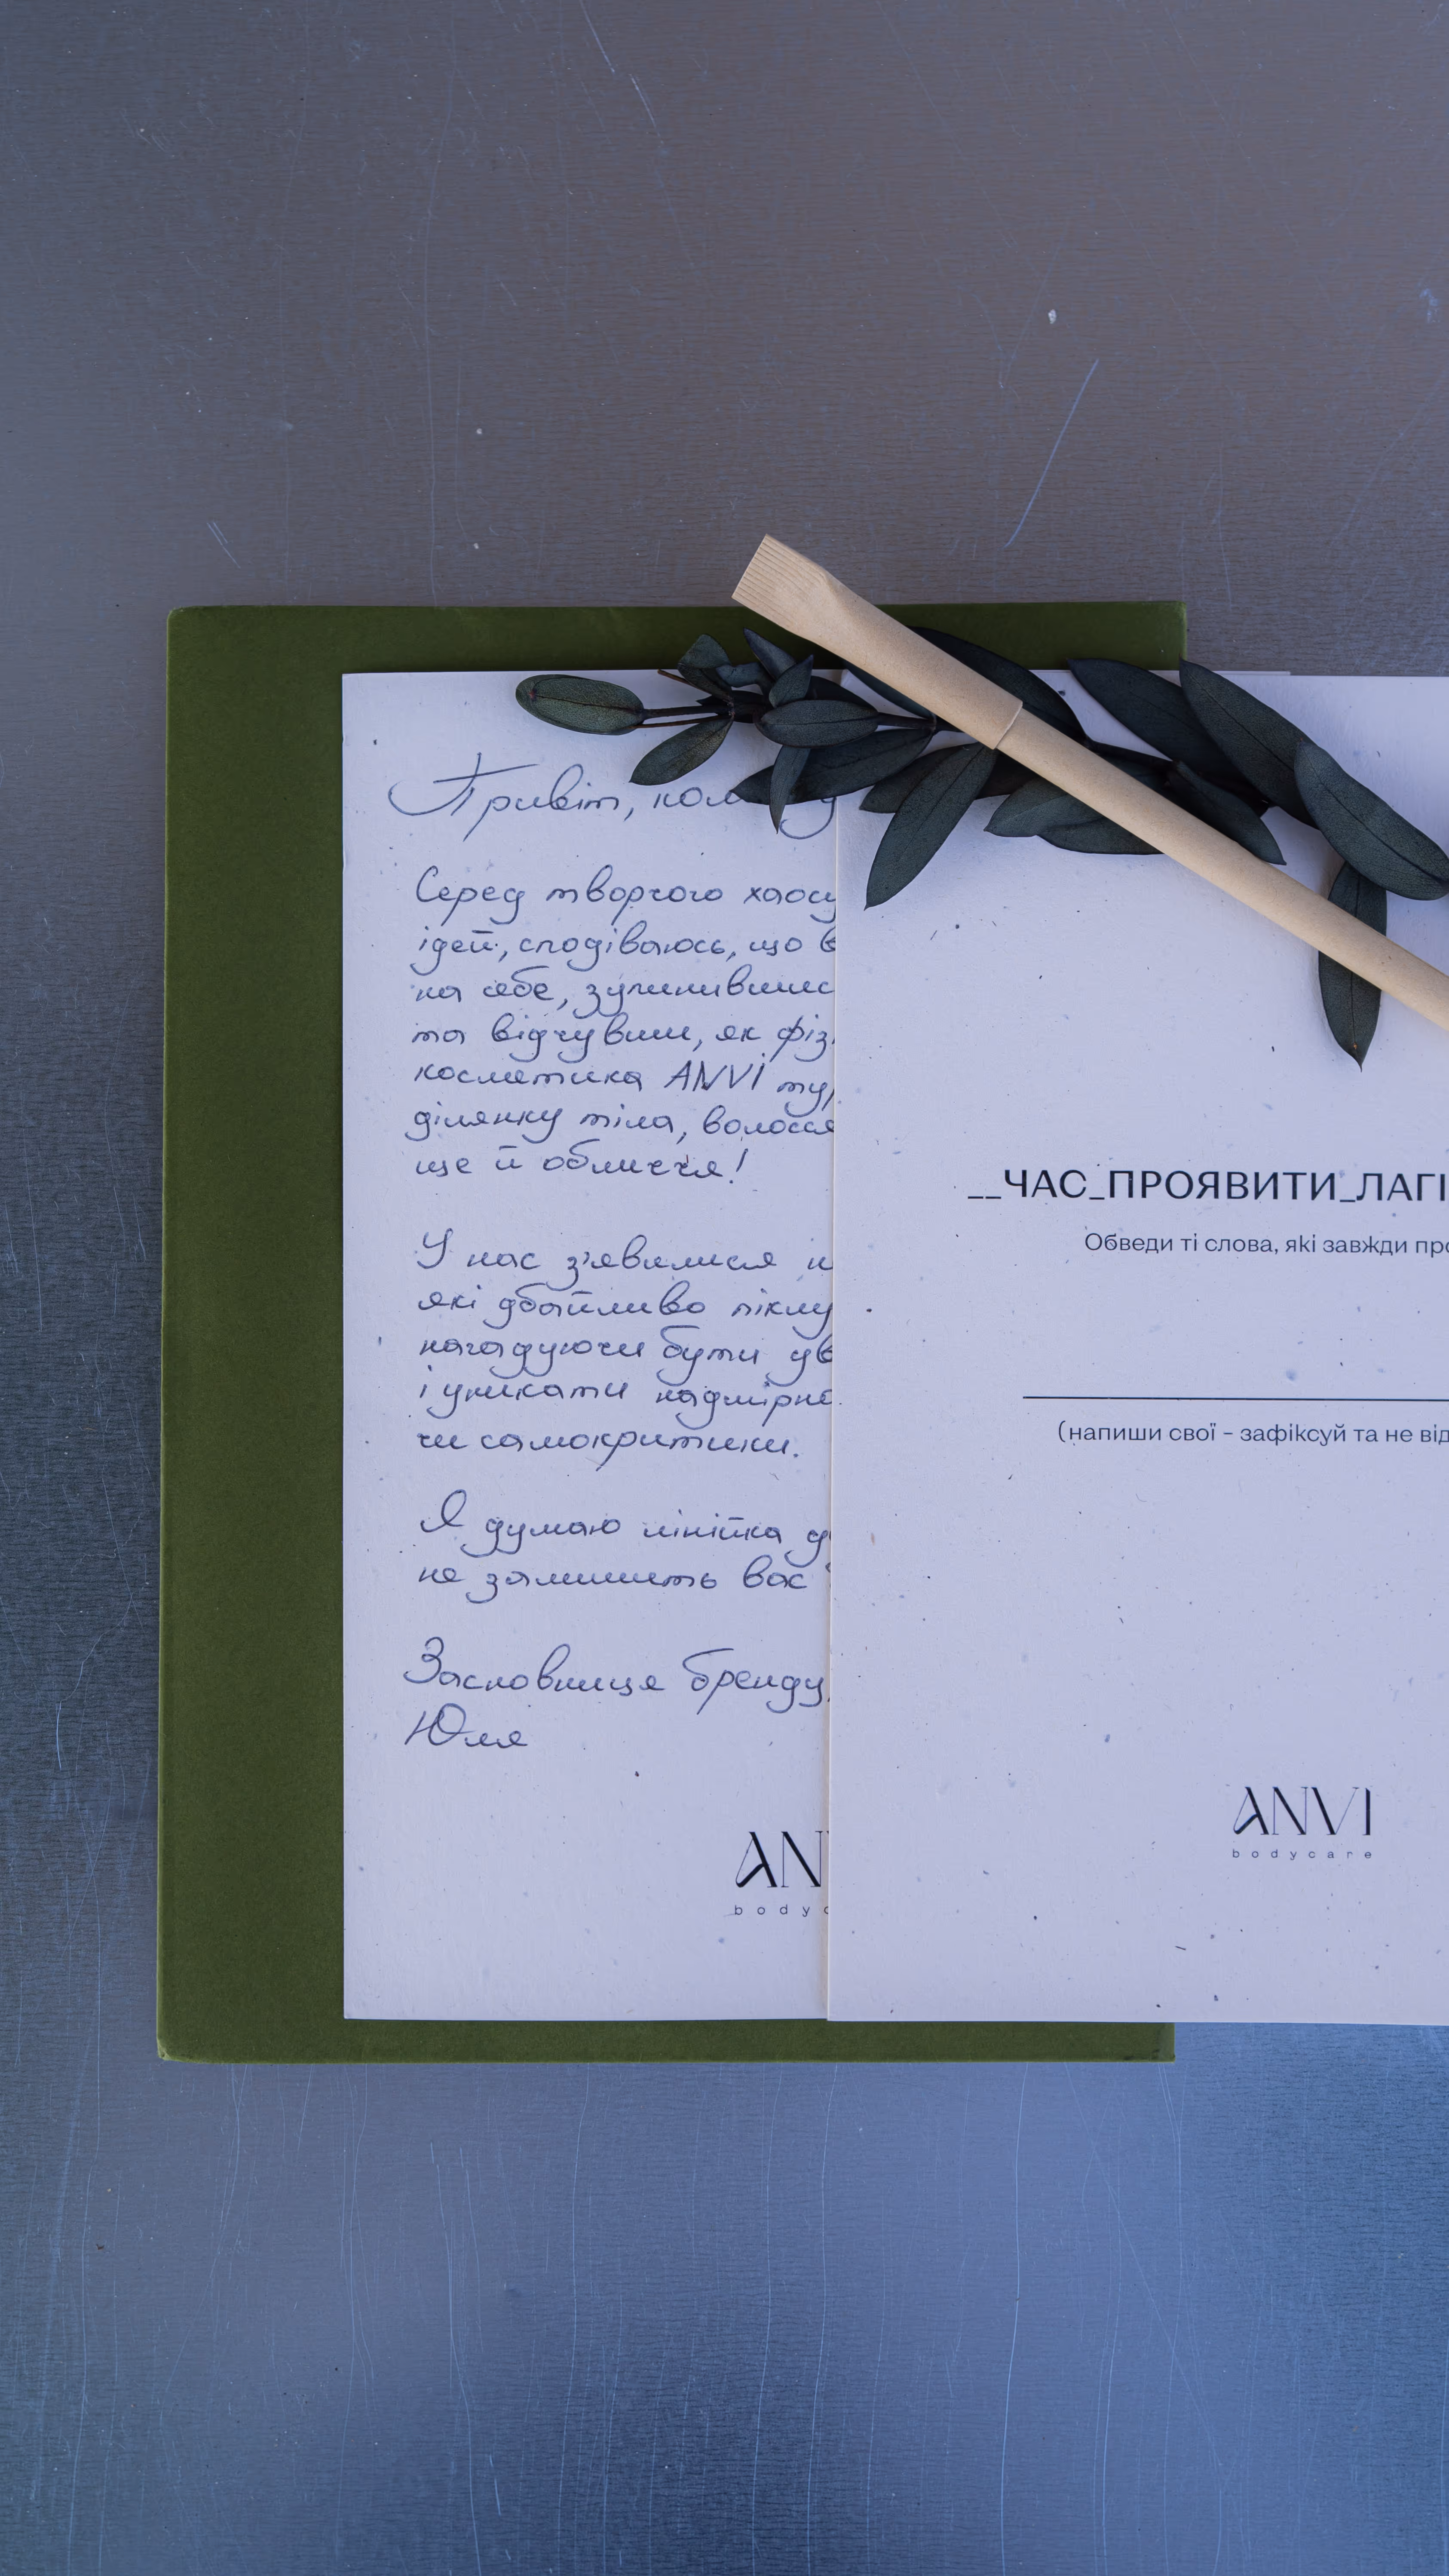 Привіт,
Серед творчого хаосу
ідей, сподіваюсь, що в
на себе, зупинившис
та відчувши, як фіз
косметика ANVI ту
ділянку тіла, волосся
ще й обличчя!
У нас з'явилися н
які дбайливо піклу
нагадуючи бути ув
і уникати надмірно
чи самокритики.
Я думаю лінійка д
не залишить вас
Засновниця бренду,
Юля
AN
bodyc
__ЧАС_ПРОЯВИТИ_ЛАГІ
Обведи ті слова, які завжди про
(напиши свої - зафіксуй та не від
ANVI
bodycare